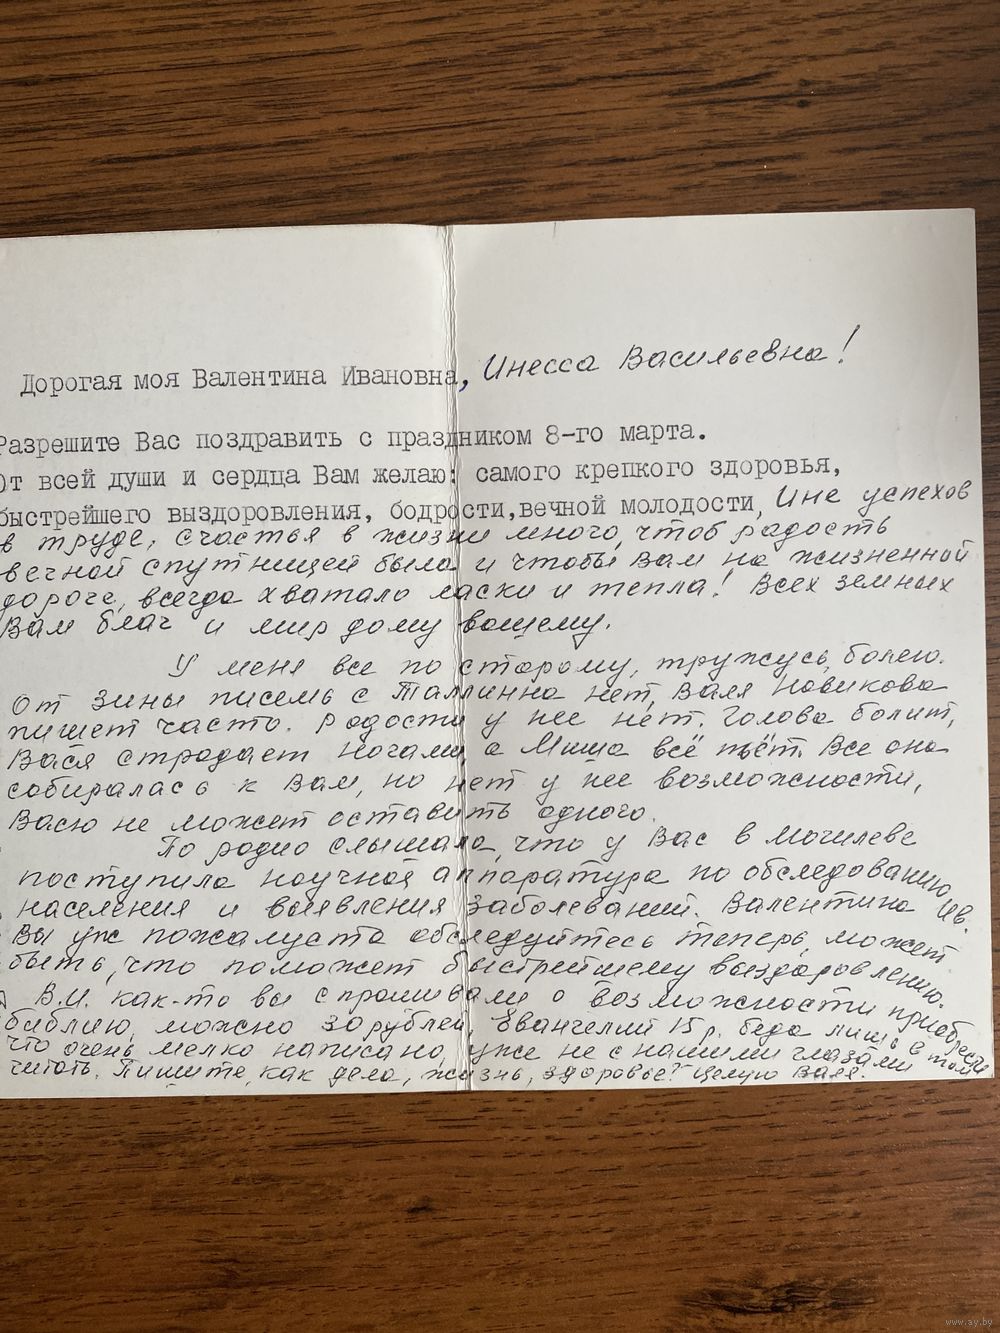 Дорогая моя Валентина Ивановна, Инесса Васильевна!
Разрешите Вас поздравить с праздником 8-го марта.
От всей души и сердца Вам желаю: самого крепкого здоровья,
быстрейшего выздоровления, бодрости,вечной молодости, Ине успехов
в труде, счастья в жизни много, чтоб радость
вечной спутницей была и чтобы Вам на жизненной
дороге, всегда хватало ласки и тепла! Всех земных
Вам благ и мир дому вашему.
У меня все по старому, тружусь, болею.
От Зины писем с Таллинна нет, Валя Новикова
пишет часто. Радости у нее нет. Голова болит,
Вася страдает ногами, а Миша всё пьёт. Все она
собиралась к Вам, но нет у нее возможности,
Васю не может оставить одного.
По радио слышала, что у Вас в Могилеве
поступила научная аппаратура по обследованию
населения и выявления заболеваний. Валентина Ив.
Вы уж пожалуста обследуйтесь теперь, может
быть, что поможет быстрейшему выздоровлению.
В.И. как-то вы спрашивали о возможности приобрести
библию, можно 30 рублей, Евангелий 15 р. беда лишь в том
что очень мелко написано, уже не с нашими глазами
читать. Пишите, как дела, жизнь, здоровье? Целую Валя.
www.ay.by